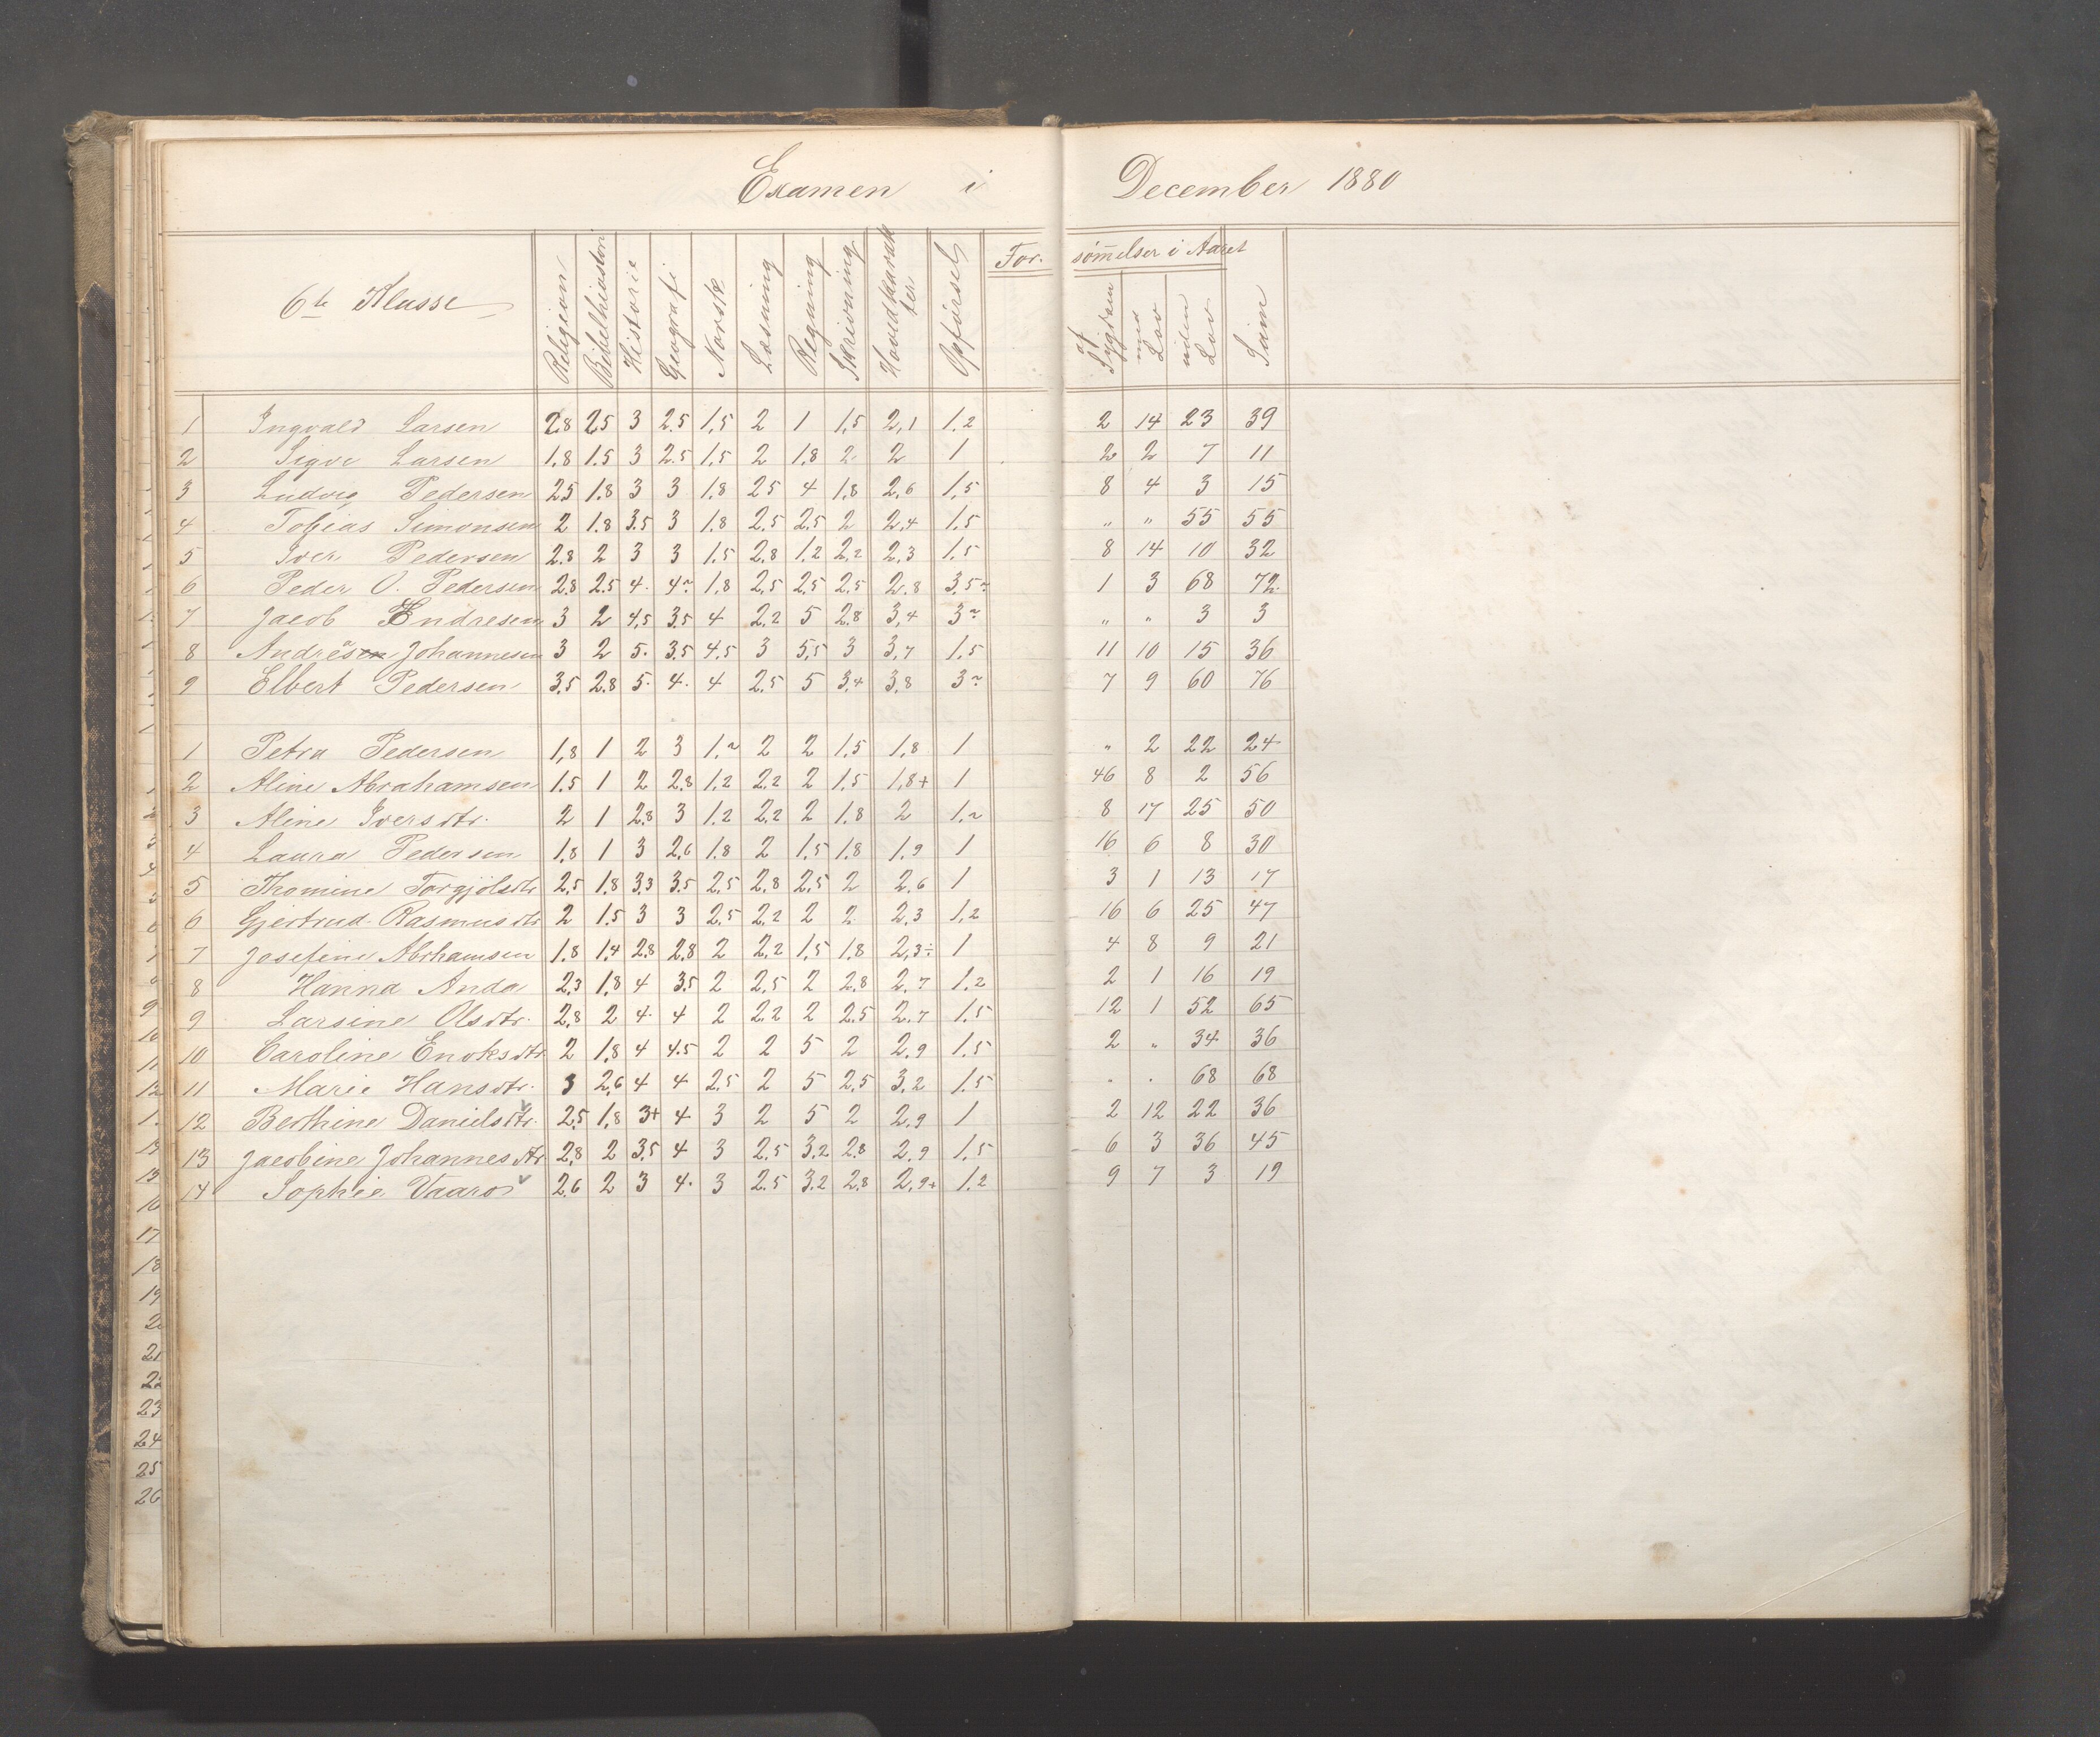 Examen i December 1880
6te Klasse Religion Bibelhistori Historie Geografi Norsk Læsning Regning Skrivning Hovedkarakter Opførsel Forsømmelser i Aaret af Sygdom med Lov uden Lov Sum
1 Ingvald Larsen 2,8 2,5 3 2.5 1,5 2 1 1,5 2,1 1,2 2 14 23 39
2 Sigve Larsen 1.8 1.5 3 2.5 1,5 2 1,8 2 2 1 2 2 7 11
3 Ludvig Pedersen 2,5 1.8 3 3 1,8 2,5 4 1,8 2,6 1,5 8 4 3 15
4 Tobias Simonsen 2 1.8 3.5 3 1.8 2,5 2,5 2 2,4 1.5 " " 55 55
5 Iver Pedersen 2.8 2 3 3 1.5 2,8 1,2 2,2 2,3 1.5 8 14 10 32
6 Peder O. Pedersen 2.8 2.5 4. 4~ 1,8 2,5 2,5 2,5 2,8 3,5~ 1 3 68 72
7 Jacob Endresen 3 2 4,5 3.5 4 2,2 5 2,8 3,4 3~ " " 3 3
8 Andreas Johannesen 3 2 5. 3.5 4,5 3 5,5 3 3,7 1,5 11 10 15 36
9 Elbert Pedersen 3,5 2.8 5. 4. 4 2,5 5 3,4 3,8 3~ 7 9 60 76
1 Petra Pedersen 1,8 1 2 3 1,~ 2 2 1,5 1,8 1 " 2 22 24
2 Aline Abrahamsen 1.5 1 2 2.8 1,2 2,2 2 1,5 1,8+ 1 46 8 2 56
3 Aline Iversdtr. 2 1 2,8 3 1.2 2,2 2 1.8 2 1,~ 8 17 25 50
4 Laura Pedersen 1,8 1 3 2,6 1.8 2 1,5 1.8 1,9 1 16 6 8 30
5 Thomine Torgjølsdtr 2,5 1,8 3,3 3.5 2,5 2,8 2,5 2 2,6 1 3 1 13 17
6 Gjertrud Rasmusdtr 2 1.5 3 3 2.5 2,2 2 2 2,3 1,2 16 6 25 47
7 Josefine Abrhamsen 1.8 1,4 2.8 2,8 2 2,2 1,5 1,8 2,3÷ 1 4 8 9 21
8 Hanna Anda 2,3 1,8 4 3.5 2 2,5 2 2,8 2,7 1,2 2 1 16 19
9 Larsine Olsdtr. 2,8 2 4. 4 2 2,2 2 2.5 2,7 1.5 12 1 52 65
10 Caroline Enoksdtr 2 1,8 4 4.5 2 2 5 2 2,9 1.5 2 " 34 36
11 Marie Hansdtr. 3 2,6 4 4 2,5 2 5 2,5 3,2 1.5 . . 68 68
12 Berthine Danielsdtr. 2,5 1,8 3+ 4 3 2 5 2 2,9 1 2 12 22 36
13 Jacobine Johannesdtr 2,8 2 3,5 4 3 2,5 3,2 2,8 2,9 1,5 6 3 36 45
14 Sophie Vaaro 2,6 2 3 4. 3 2.5 3.2 2,8 2,9+ 1,2 9 7 3 19
17
18
19
21
22
23
24
25
26